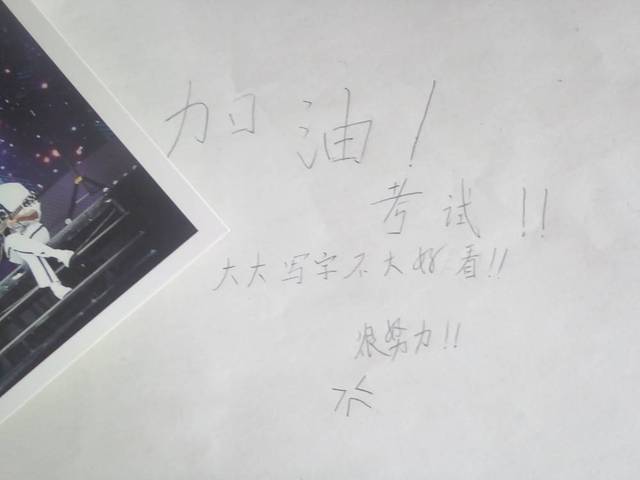 加油！
考试！！
大大写字不大好看！！
很努力！！